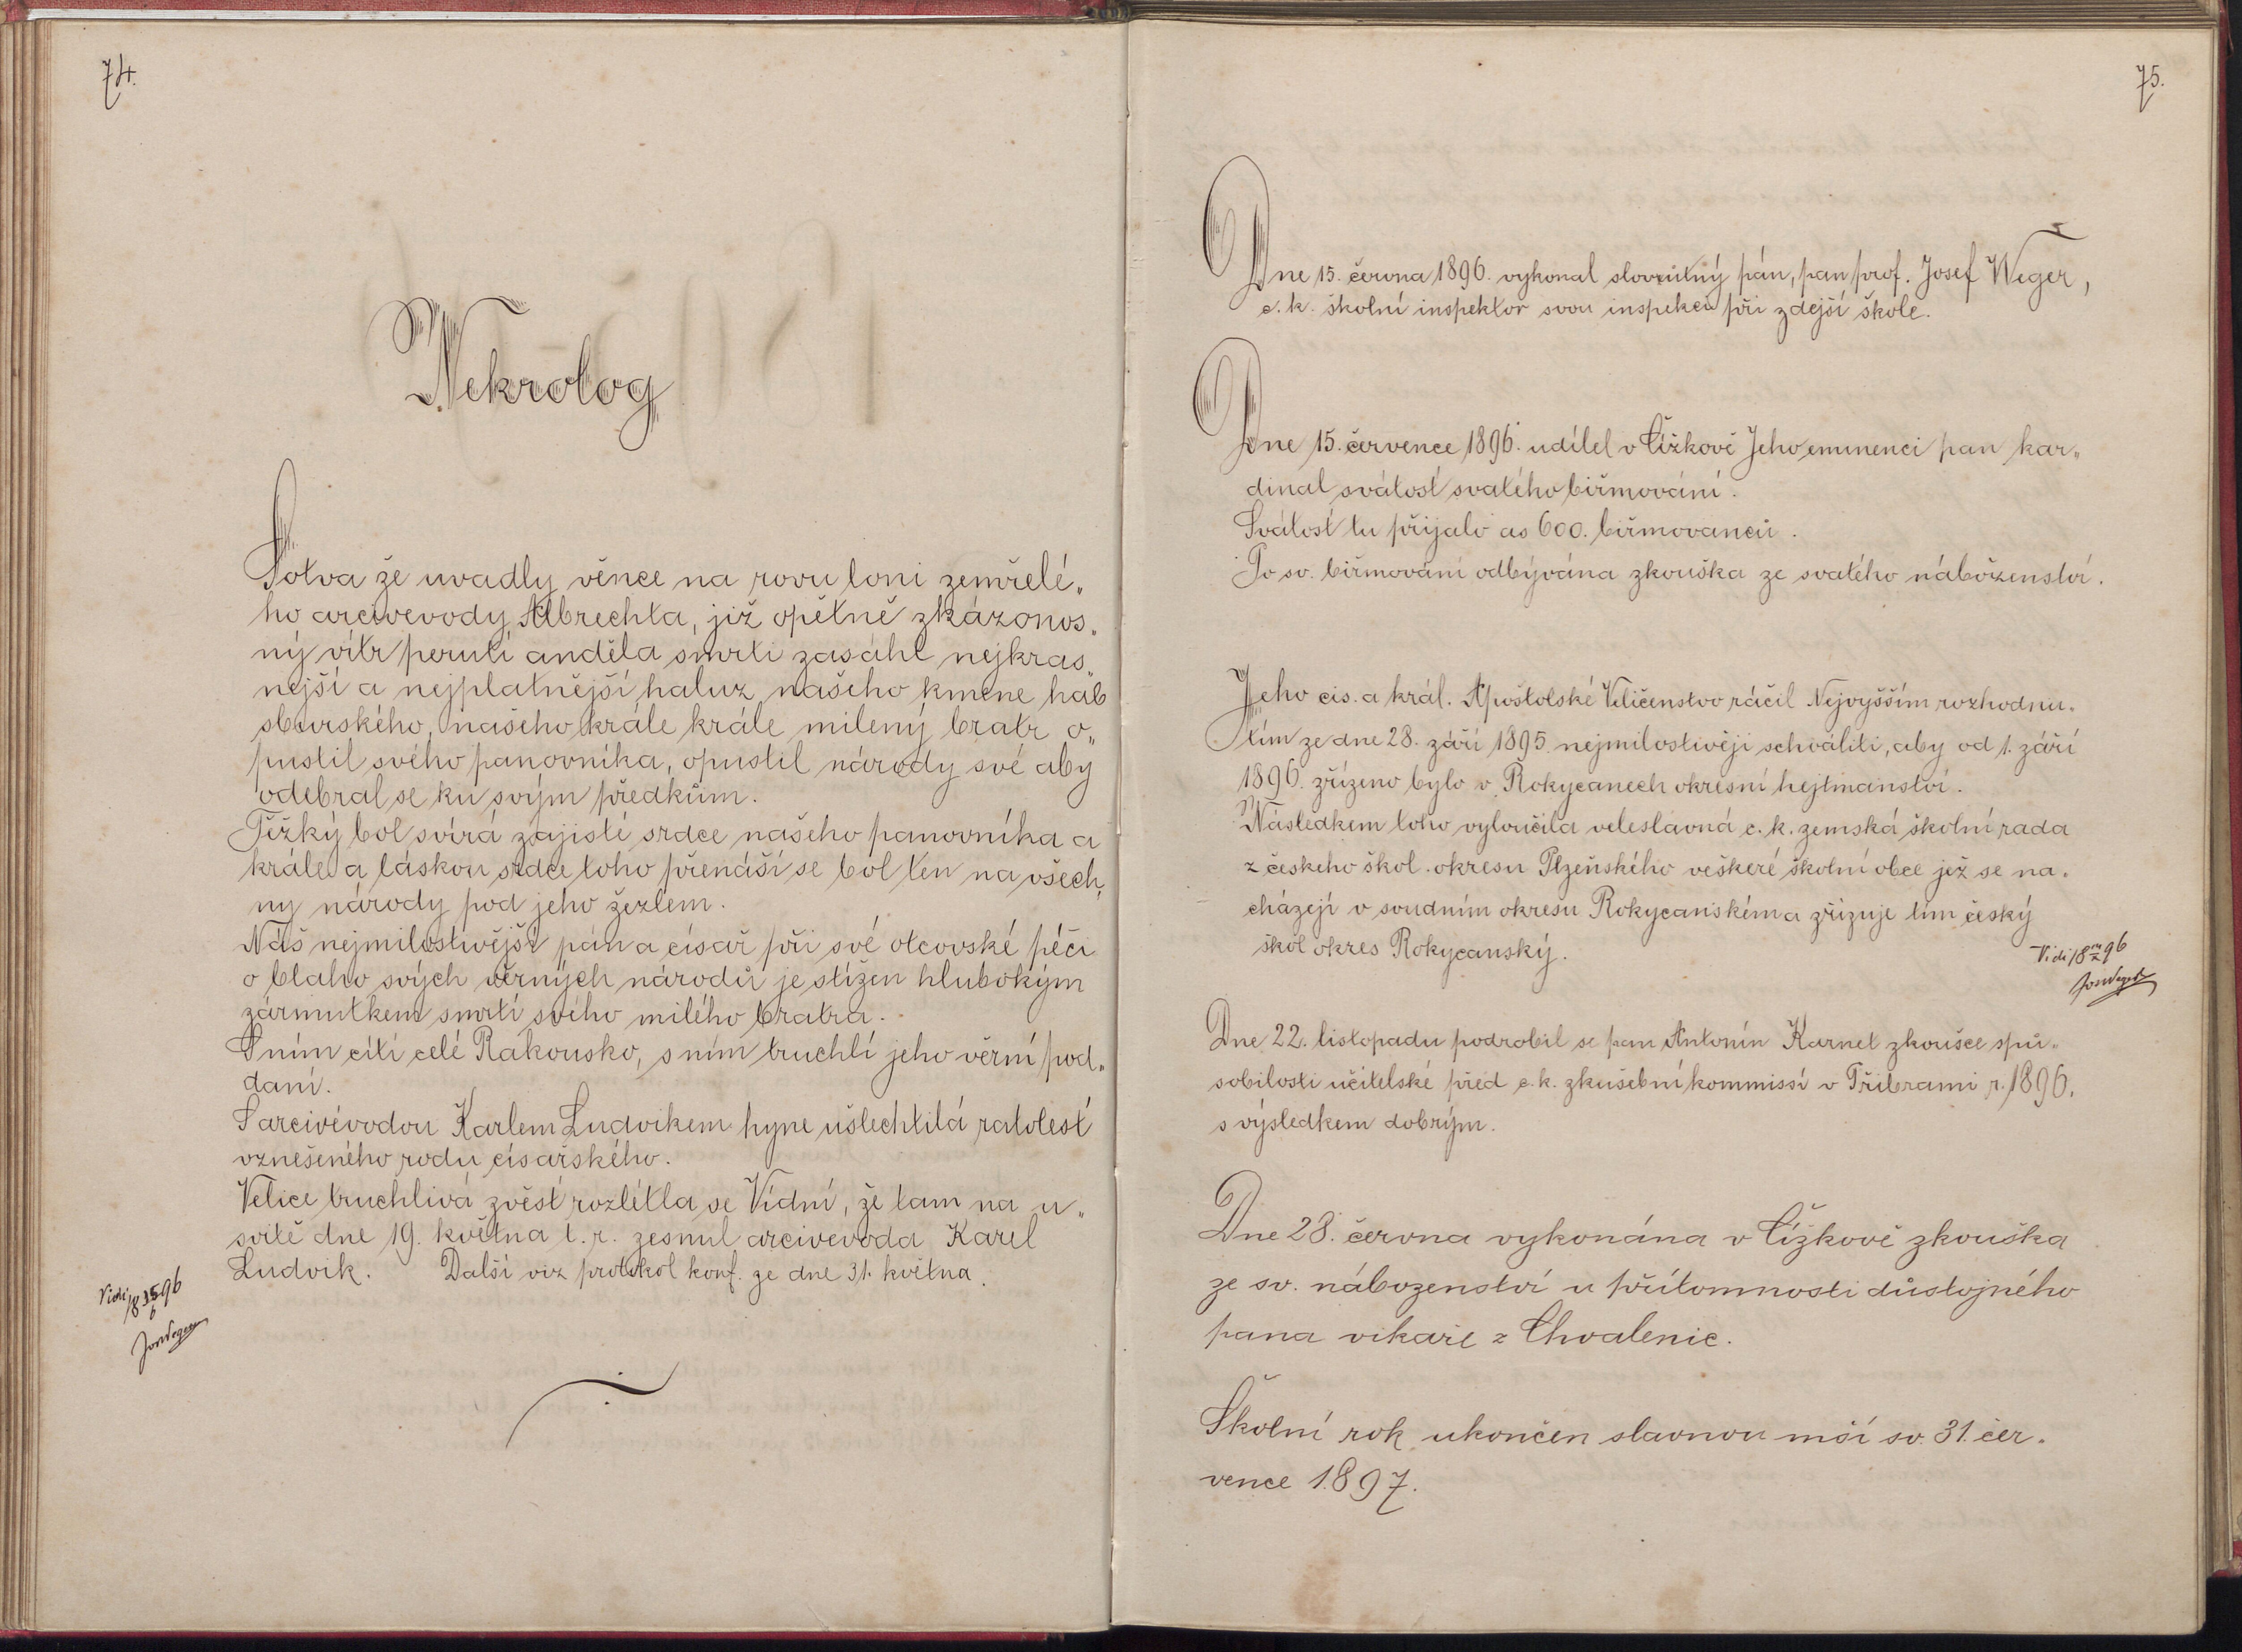 74.
Nekrolog
Sotva že uvadly věnce na rovu loni zemřelé„
ho arcivevody Albrechta, již opětně zkázonos„
ný vítr perutí anděla smrti zasáhl nejkras„
nejší a nejplatnější haluz našeho kmene hab
sburského, našeho krále krále milený bratr o„
pustil svého panovníka, opustil národy své aby
odebral se ku svým předkům.
Těžký bol svírá zajisté srdce našeho panovníka a
krále a láskou srdce toho přenáší se bol ten na všech„
ny národy pod jeho žezlem.
Náš nejmilostivější pán a císař při své otcovské péči
o blaho svých věrných národů je stížen hlubokým
zármutkem smrtí svého milého bratra.
S ním cítí celé Rakousko, s ním truchlí jeho věrní pod„
daní.
S arcivévodou Karlem Ludvikem hyne ušlechtilá ratolest
vznešeného rodu císařského.
Velice truchlivá zvěst rozlétla se Vídní, že tam na u„
svitě dne 19. května t. r. zesnul arcivevoda Karel
Ludvik. Další viz protokol konf. ze dne 31. května.
Vidi 18 15/6 96
Jos Weger
75.
Dne 15. června 1896. vykonal slovutný pán, pan prof. Josef Weger,
c. k. školní inspektor svou inspekci při zdejší škole.
Dne 15. července 1896. udílel v Čížkově Jeho eminenci pan kar„
dinal svátost svatého biřmování.
Svátost tu přijalo as 600. biřmovanců.
Po sv. biřmování odbývána zkouška ze svatého náboženství.
Jeho cis. a král. Apoštolské Veličenstvo ráčil Nejvyšším rozhodnu„
tím ze dne 28. září 1895. nejmilostivěji schváliti, aby od 1. září
1896. zřízeno bylo v Rokycanech okresní hejtmanství.
Následkem toho vyloučila veleslavná c. k. zemská školní rada
z českeho škol. okresu Plzeňského veškeré školní obce jež se na„
cházejí v soudním okresu Rokycanském a zřizuje tím český
škol okres Rokycanský.
Vidi 18 96
Jos Weger
Dne 22. listopadu podrobil se pan Antonín Karnet zkoušce spů„
sobilosti učitelské před c. k. zkušební kommissí v Příbrami r. 1896.
s výsledkem dobrým.
Dne 28. června vykonána v Čížkově zkouška
ze sv. náboženství u přítomnosti důstojného
pana vikaře z Chvalenic.
Školní rok ukončen slavnou mší sv. 31. čer„
vence 1897.